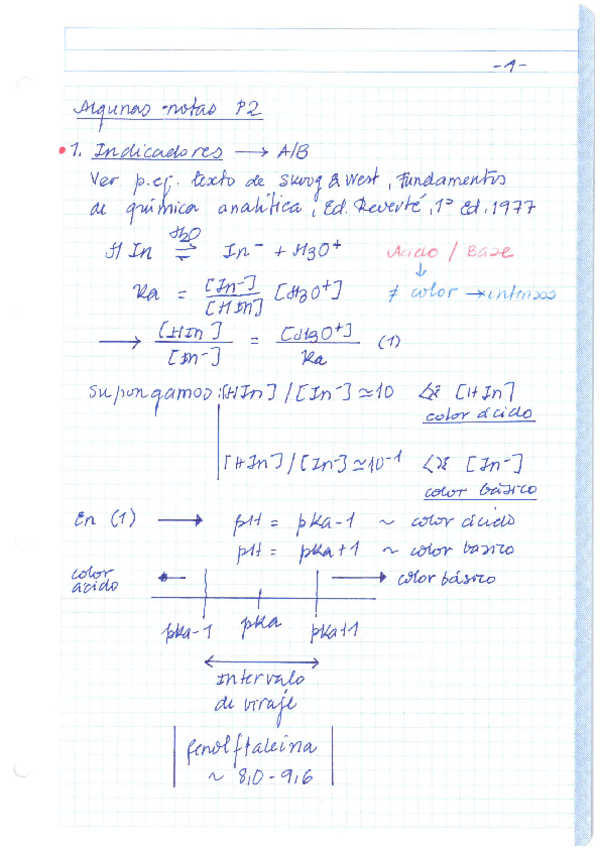 -1-
Algunas notas P2
• 1. Indicadores → A/B
Ver p.ej. texto de Skoog & West, Fundamentos
de química analítica, Ed. Reverté, 1ª Ed. 1977
HIn ⇌ In⁻ + H3O⁺ Acido / Base
H2O
↓
Ka = [In⁻]/[HIn] [H3O⁺] ≠ color → intensos
→ [HIn]/[In⁻] = [H3O⁺]/Ka (1)
Supongamos: [HIn] / [In⁻] ≃ 10 [HIn]
color ácido
[HIn] / [In⁻] ≃ 10⁻¹ [In⁻]
color básico
En (1) → pH = pKa-1 ~ color ácido
pH = pKa+1 ~ color basico
color ácido ← → color básico
pKa-1 pKa pKa+1
Intervalo
de viraje
fenolftaleina
~ 8,0-9,6